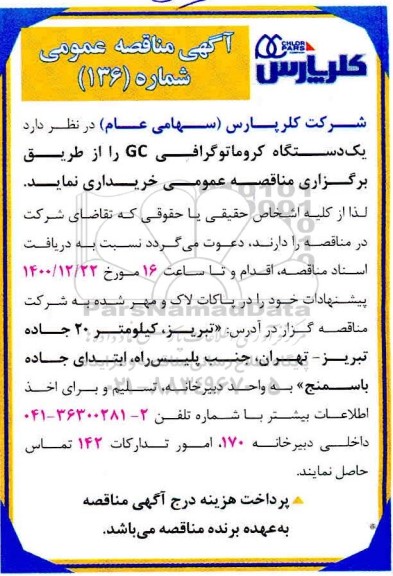 آگهی مناقصه عمومی
شماره (۱۳۶)
CHLOR
PARS
کلرپارس
شرکت کلرپارس (سهامی عام) در نظر دارد
یک‌دستگاه کروماتوگرافی GC را از طریق
برگزاری مناقصه عمومی خریداری نماید.
لذا از کلیه اشخاص حقیقی یا حقوقی که تقاضای شرکت
در مناقصه را دارند، دعوت می‌گردد نسبت به دریافت
اسناد مناقصه، اقدام و تا ساعت ۱۶ مورخ ۱۴۰۰/۱۲/۲۲
پیشنهادات خود را در پاکات لاک و مهر شده به شرکت
مناقصه گزار در آدرس: «تبریز، کیلومتر ۲۰ جاده
تبریز- تهران، جنب پلیس‌راه، ابتدای جاده
باسمنج» به واحد دبیرخانه، تسلیم و برای اخذ
اطلاعات بیشتر با شماره تلفن ۲-۰۴۱-۳۶۳۰۰۲۸۱
داخلی دبیرخانه ۱۷۰، امور تدارکات ۱۴۲ تماس
حاصل نمایند.
پرداخت هزینه درج آگهی مناقصه
به‌عهده برنده مناقصه می‌باشد.
ParsNamadData